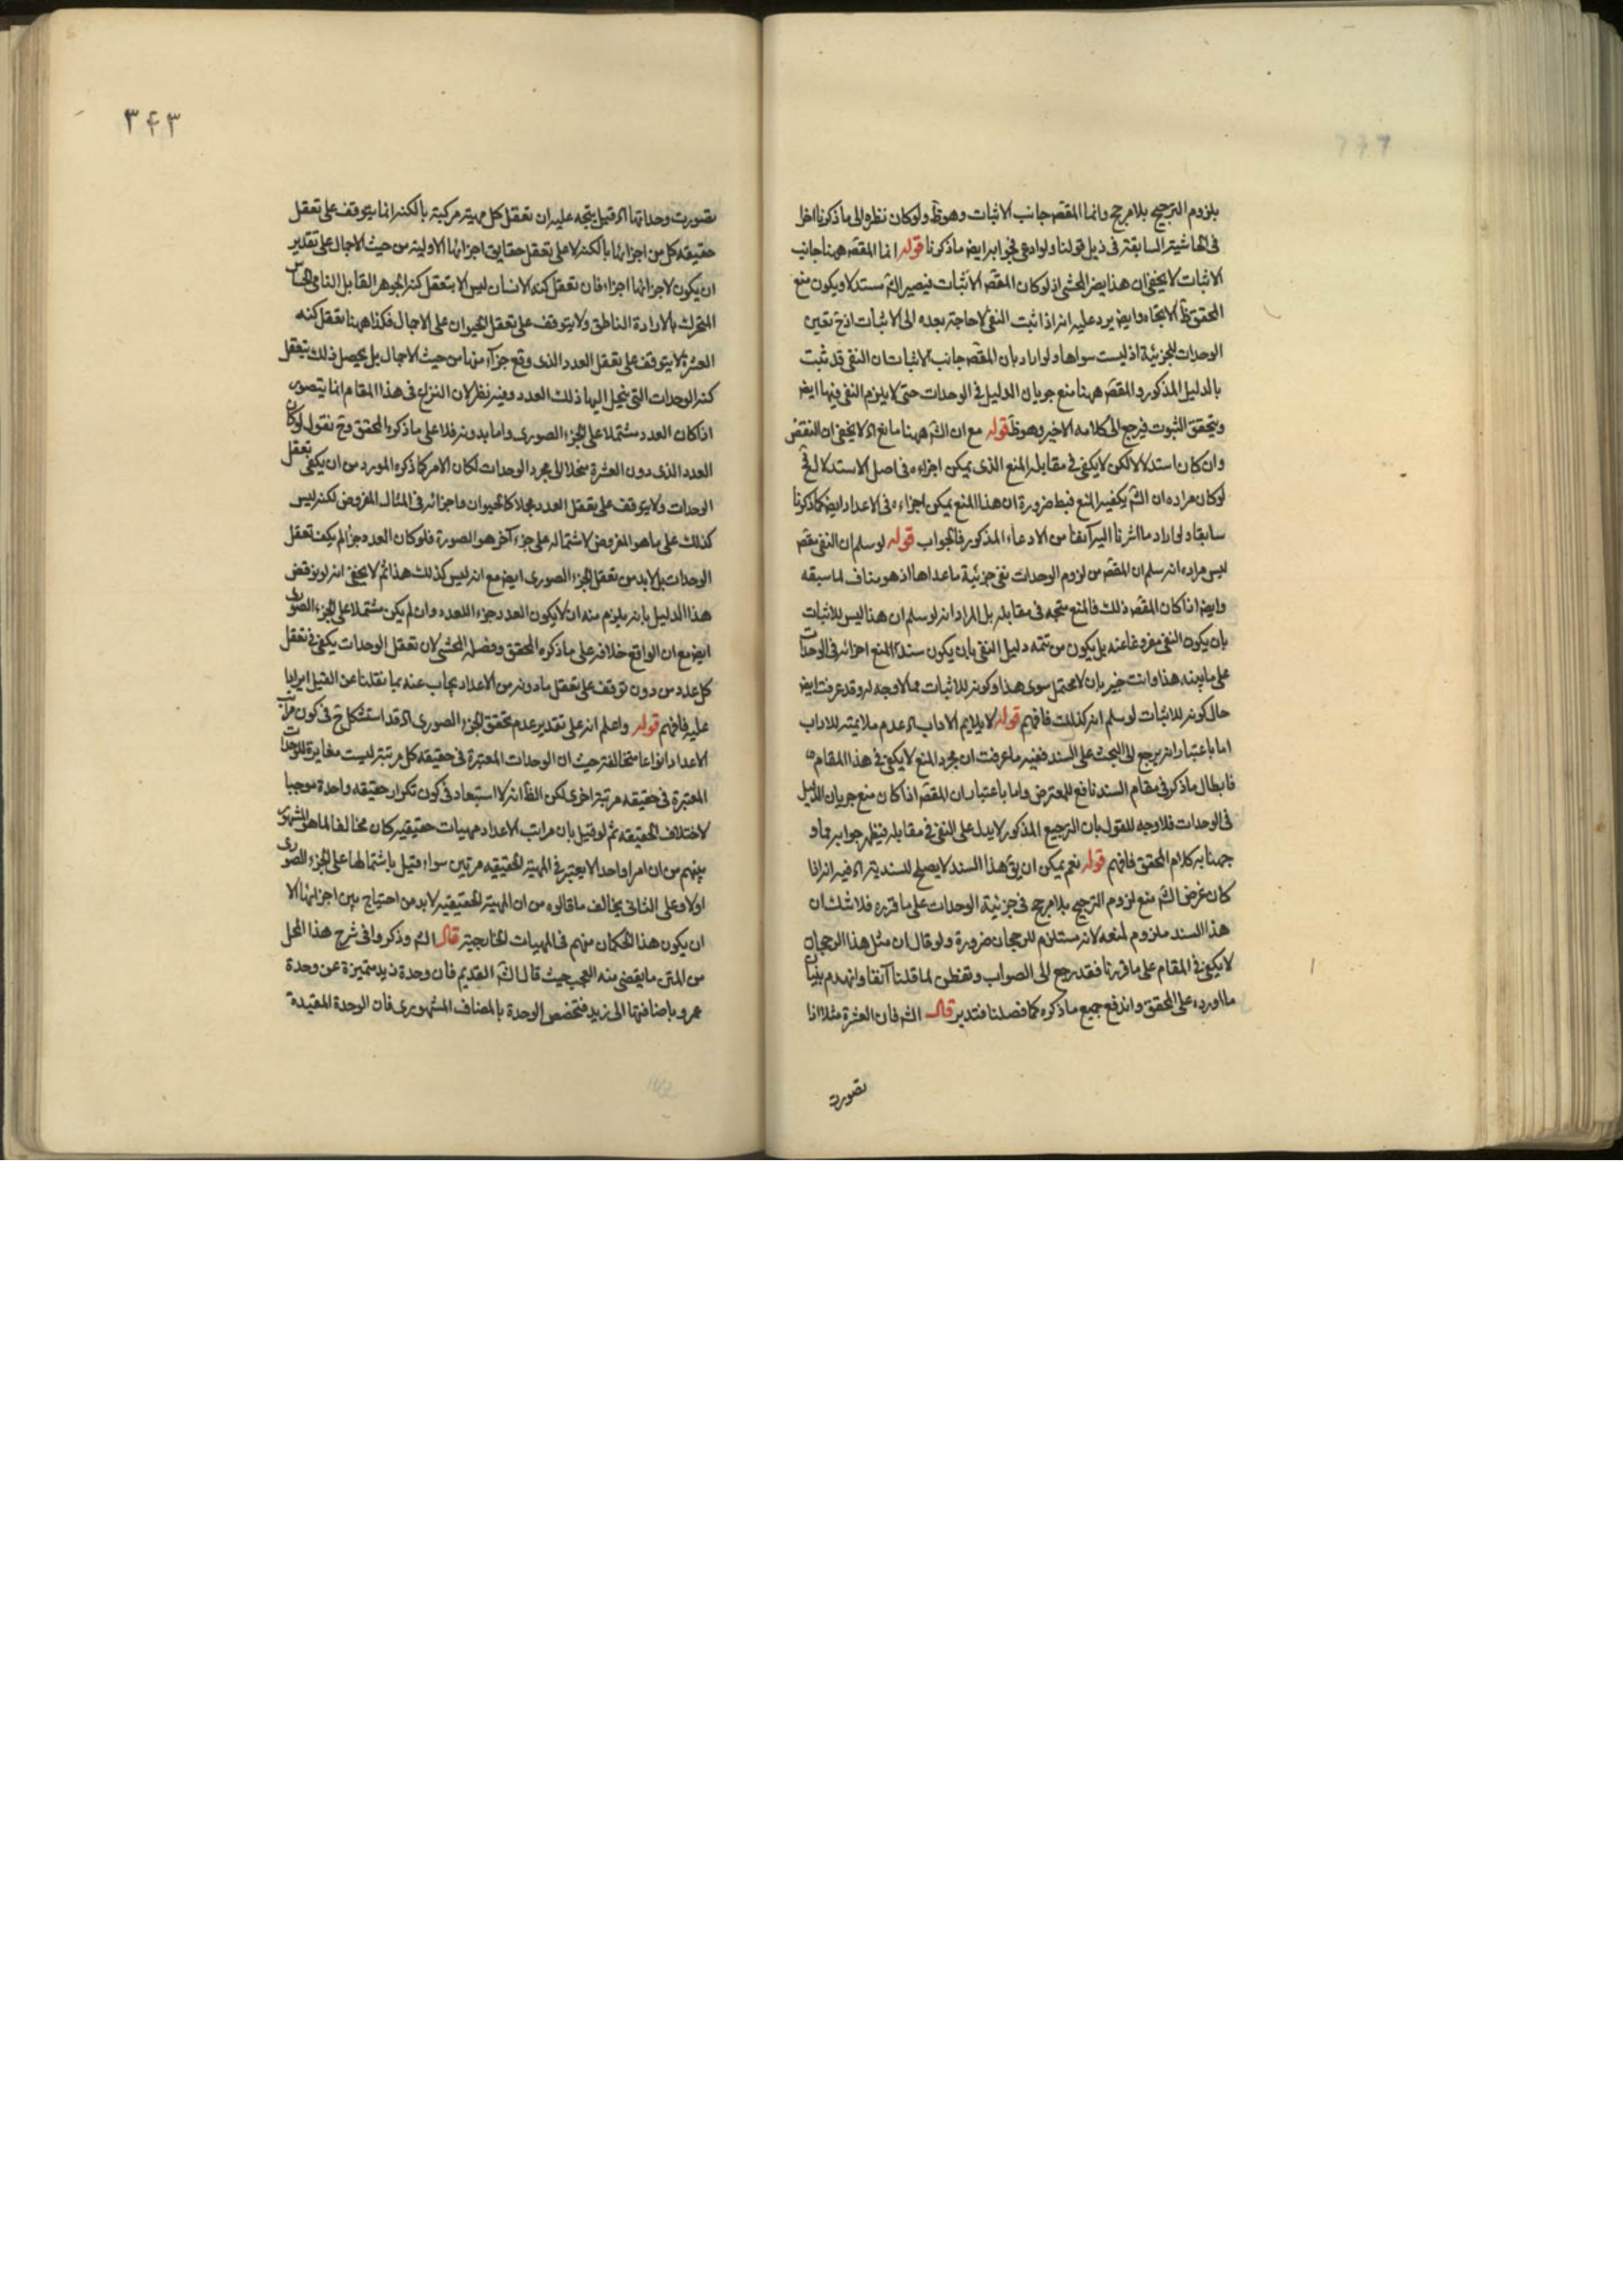 بلزوم الترجيح بلا مرجح وانما المقصه جانب الاثبات وهو ظ ولو كان نظره الى ما ذكرنا اخرا
فى الحاشية السابقة فى ذيل قولنا ولو ادعى فجوابه ايضا ما ذكرنا قوله انما المقصه ههنا جانب
الاثبات لا يخفى ان هذا يضر المحشى اذ لو كان المقصه الاثبات فيصير الش مستدلا ويكون منع
المحقق ظ الاتجاه وايضا يرد عليه انه اذا ثبت النفى لا حاجة بعده الى الاثبات اذ ح تعين
الوحدات للجزئية اذ ليست سواها ولو اراد بان المقصه جانب الاثبات ان النفى قد ثبت
بالدليل المذكور والمقصه ههنا منع جريان الدليل فى الوحدات حتى لا يلزم النفى فيها ايض
ويتحقق الثبوت فيرجع الى كلامه الاخير وهو ظ قوله مع ان الش ههنا مانع اه لا يخفى ان النقض
وان كان استدلالا لكن لا يكفى فى مقابله المنع الذى يمكن اجزاءه فى اصل الاستدلال فح
لو كان مراده ان الش يكفيه المنع فبط ضرورة ان هذا المنع يمكن اجزاءه فى الاعداد ايض كما ذكرنا
سابقا ولو اراد ما اشرنا اليه آنفا من الادعاء المذكور فالجواب قوله لو سلم ان النفى مقصه
ليس مراده انه سلم ان المقصه من لزوم الوحدات نفى جزئية ما عداها اذ هو مناف لما سبقه
وايضا اذا كان المقصه ذلك فالمنع متجه فى مقابله بل المراد انه لو سلم ان هذا ليس للاثبات
بان يكون النفى مفروغا عنه بل يكون من تتمه دليل النفى بان يكون سند المنع اجزائه فى الوحدات
على ما بينه هذا وانت خبير بان لا محتمل سوى هذا وكونه للاثبات مما لا وجه له وقد عرفت ايض
حال كونه للاثبات لو سلم انه كذلك فافهم قوله لا يلايم الاداب اه عدم ملايمته للاداب
اما باعتبار انه يرجع الى البحث على السند ففيه ما عرفت ان مجرد المنع لا يكفى فى هذا المقام
فابطال ما ذكر فى مقام السند نافع للمعترض واما باعتبار ان المقصه اذا كان منع جريان الدليل
فى الوحدات فلا وجه للقول بان الترجيع المذكور لا يدل على النفى فى مقابله فيظهر جوابه مما و
جهنا به كلام المحقق فافهم قوله نعم يمكن ان يق هذا السند لا يصلح للسندية اه فيه انه اذا
كان غرض الش منع لزوم الترجيح بلا مرجح فى جزئية الوحدات على ما قرره فلا شك ان
هذا السند ملزوم لمنعه لانه مستلزم للرجحان ضرورة ولو قال ان مثل هذا الرجحان
لا يكفى فى المقام على ما قررنا فقد رجع الى الصواب وتفطن لما قلنا آنفا وانهدم بنيان
ما اورده على المحقق واندفع جميع ما ذكره كما فصلنا فتدبر قال الش فان العشرة مثلا اذا
تصورت
٣۴٣
تصورت وحداتها اه قيل يتجه عليه ان تعقل كل مهية مركبة بالكنه انما يتوقف على تعقل
حقيقه كل من اجزائها بالكنه لا على تعقل حقايق اجزائها الاوليه من حيث الاجمال على تقدير
ان يكون لاجزائها اجزاء فان تعقل كنه الانسان ليس الا بتعقل كنه الجوهر القابل النامى الحساس
المتحرك بالارادة الناطق ولا يتوقف على تعقل الحيوان على الاجمال فكذا ههنا تعقل كنه
العشرة لا يتوقف على تعقل العدد الذى وقع جزآ منها من حيث الاجمال بل يحصل ذلك بتعقل
كنه الوحدات التى ينحل اليها ذلك العدد وفيه نظر لان النزاع فى هذا المقام انما يتصور
اذا كان العدد مشتملا على الجزء الصورى واما بدونه فلا على ما ذكره المحقق وح نقول لو كان
العدد الذى دون العشرة منحلا الى مجرد الوحدات لكان الامر كما ذكره المورد من ان يكفى تعقل
الوحدات ولا يتوقف على تعقل العدد مجملا كالحيوان واجزائه فى المثال المفروض لكنه ليس
كذلك على ما هو المفروض لاشتماله على جزء آخر هو الصورة فلو كان العدد جزأ لم يكف تعقل
الوحدات بل لابد من تعقل الجزء الصورى ايضا مع انه ليس كذلك هذا ثم لا يخفى انه لو نوقض
هذا الدليل بانه يلزم منه ان لا يكون العدد جزء للعدد وان لم يكن مشتملا على الجزء الصورى
ايض مع ان الواقع خلافه على ما ذكره المحقق وفصله المحشى لان تعقل الوحدات يكفى فى تعقل
كل عدد من دون توقف على تعقل ما دونه من الاعداد يجاب عنه بما نقلنا عن القيل ايرادا
عليه فافهم قوله واعلم انه على تقدير عدم تحقق الجزء الصورى اه قد استشكل ح فى كون مراتب
الاعداد انواعا متخالفة حيث ان الوحدات المعتبرة فى حقيقه كل مرتبة ليست مغايرة للوحدات
المعتبرة فى حقيقه مرتبة اخرى لكن الظ انه لا استبعاد فى كون تكرار حقيقه واحدة موجبا
لاختلاف الحقيقه ثم لو قيل بان مراتب الاعداد مهيات حقيقيه كان مخالفا لما هو المشهور
بينهم من ان امرا واحدا لا يعتبر فى المهية الحقيقيه مرتين سواء قيل باشتمالها على الجزء الصورى
اولا وعلى الثانى يخالف ما قالوه من ان المهية الحقيقيه لابد من احتياج بين اجزائها الا
ان يكون هذا الحكمان منهم فى المهيات الخارجية قال الش وذكروا فى شرح هذا المحل
من المتن ما يقضى منه العجب حيث قال الش القديم فان وحدة زيد متميزة عن وحدة
عمرو باضافتها الى زيد فتخصص الوحدة بالمضاف المشهورى فان الوحدة المقيدة